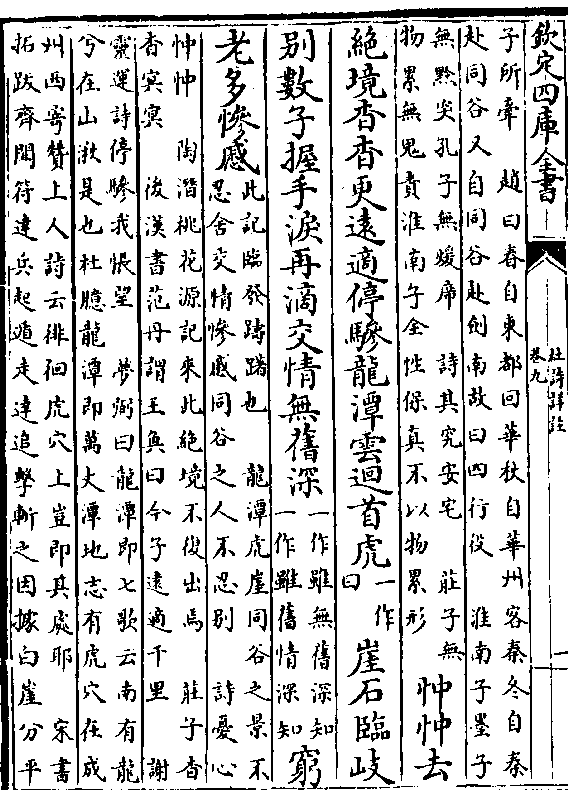 欽定四庫全書
杜詩詳註
卷九
子所牽　趙曰春自東都回華秋自華州客秦冬自秦
赴同谷又自同谷赴劍南故曰四行役　淮南子墨子
無黔突孔子無煖席　詩其究安宅　莊子無
物累無鬼責淮南子全性保真不以物累形
忡忡去
絕境杳杳更遠適停驂龍潭雲迴首虎
一作
曰
崖石臨岐
别數子握手淚再滴交情無舊深
一作雖無舊深知
一作雖舊情深知
窮
老多慘慼
此記臨發躊躇也　龍潭虎崖同谷之景不
忍舍交情慘慼同谷之人不忍别　詩憂心
忡忡　陶潛桃花源記來此絕境不復出焉　莊子杳
杳冥冥　後漢書范丹謂王奐曰今子遠適千里　謝
靈運詩停驂我悵望　夢弼曰龍潭即七歌云南有龍
兮在山湫是也杜臆龍潭即萬丈潭地志有虎穴在成
州西寄贊上人詩云徘徊虎穴上豈即其處耶　宋書
拓跋齊聞符達兵起遁走達追擊斬之因據白崖分平